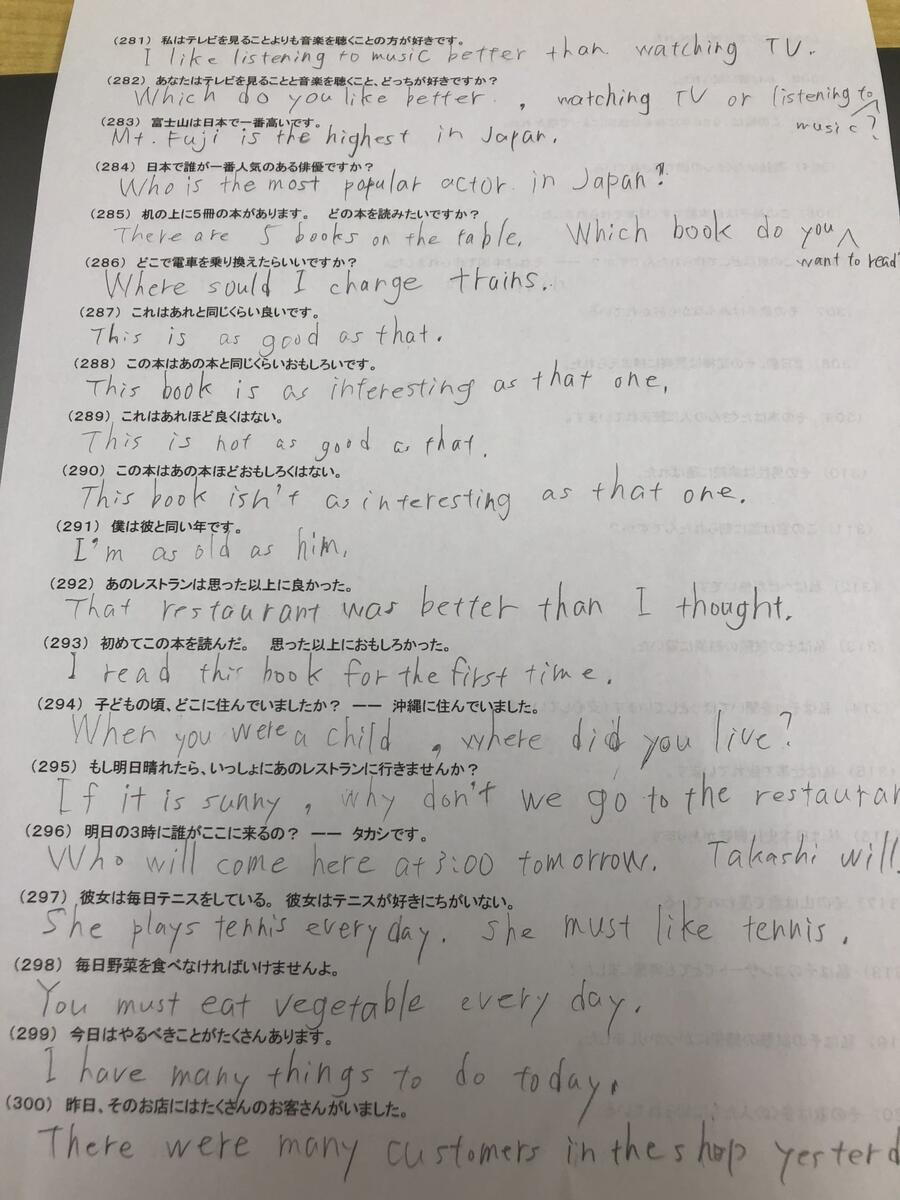 (281) 私はテレビを見ることよりも音楽を聴くことの方が好きです。
I like listening to music better than watching TV.
(282) あなたはテレビを見ることと音楽を聴くこと、どっちが好きですか?
Which do you like better , watching TV or listening to
music?
(283) 富士山は日本で一番高いです。
Mt. Fuji is the highest in Japan.
(284) 日本で誰が一番人気のある俳優ですか?
Who is the most popular actor in Japan?
(285) 机の上に5冊の本があります。 どの本を読みたいですか?
There are 5 books on the table. Which book do you
want to read?
(286) どこで電車を乗り換えたらいいですか?
Where sould I charge trains.
(287) これはあれと同じくらい良いです。
This is as good as that.
(288) この本はあの本と同じくらいおもしろいです。
This book is as interesting as that one.
(289) これはあれほど良くはない。
This is not as good as that.
(290) この本はあの本ほどおもしろくはない。
This book isn't as interesting as that one.
(291) 僕は彼と同い年です。
I'm as old as him.
(292) あのレストランは思った以上に良かった。
That restaurant was better than I thought.
(293) 初めてこの本を読んだ。 思った以上におもしろかった。
I read this book for the first time.
(294) 子どもの頃、どこに住んでいましたか? ―― 沖縄に住んでいました。
When you were a child , where did you live?
(295) もし明日晴れたら、いっしょにあのレストランに行きませんか?
If it is sunny , why don't we go to the restauran
(296) 明日の3時に誰がここに来るの? ―― タカシです。
Who will come here at 3:00 tomorrow. Takashi will.
(297) 彼女は毎日テニスをしている。 彼女はテニスが好きにちがいない。
She plays tennis every day. She must like tennis.
(298) 毎日野菜を食べなければいけませんよ。
You must eat vegetable every day.
(299) 今日はやるべきことがたくさんあります。
I have many things to do today.
(300) 昨日、そのお店にはたくさんのお客さんがいました。
There were many customers in the shop yesterd